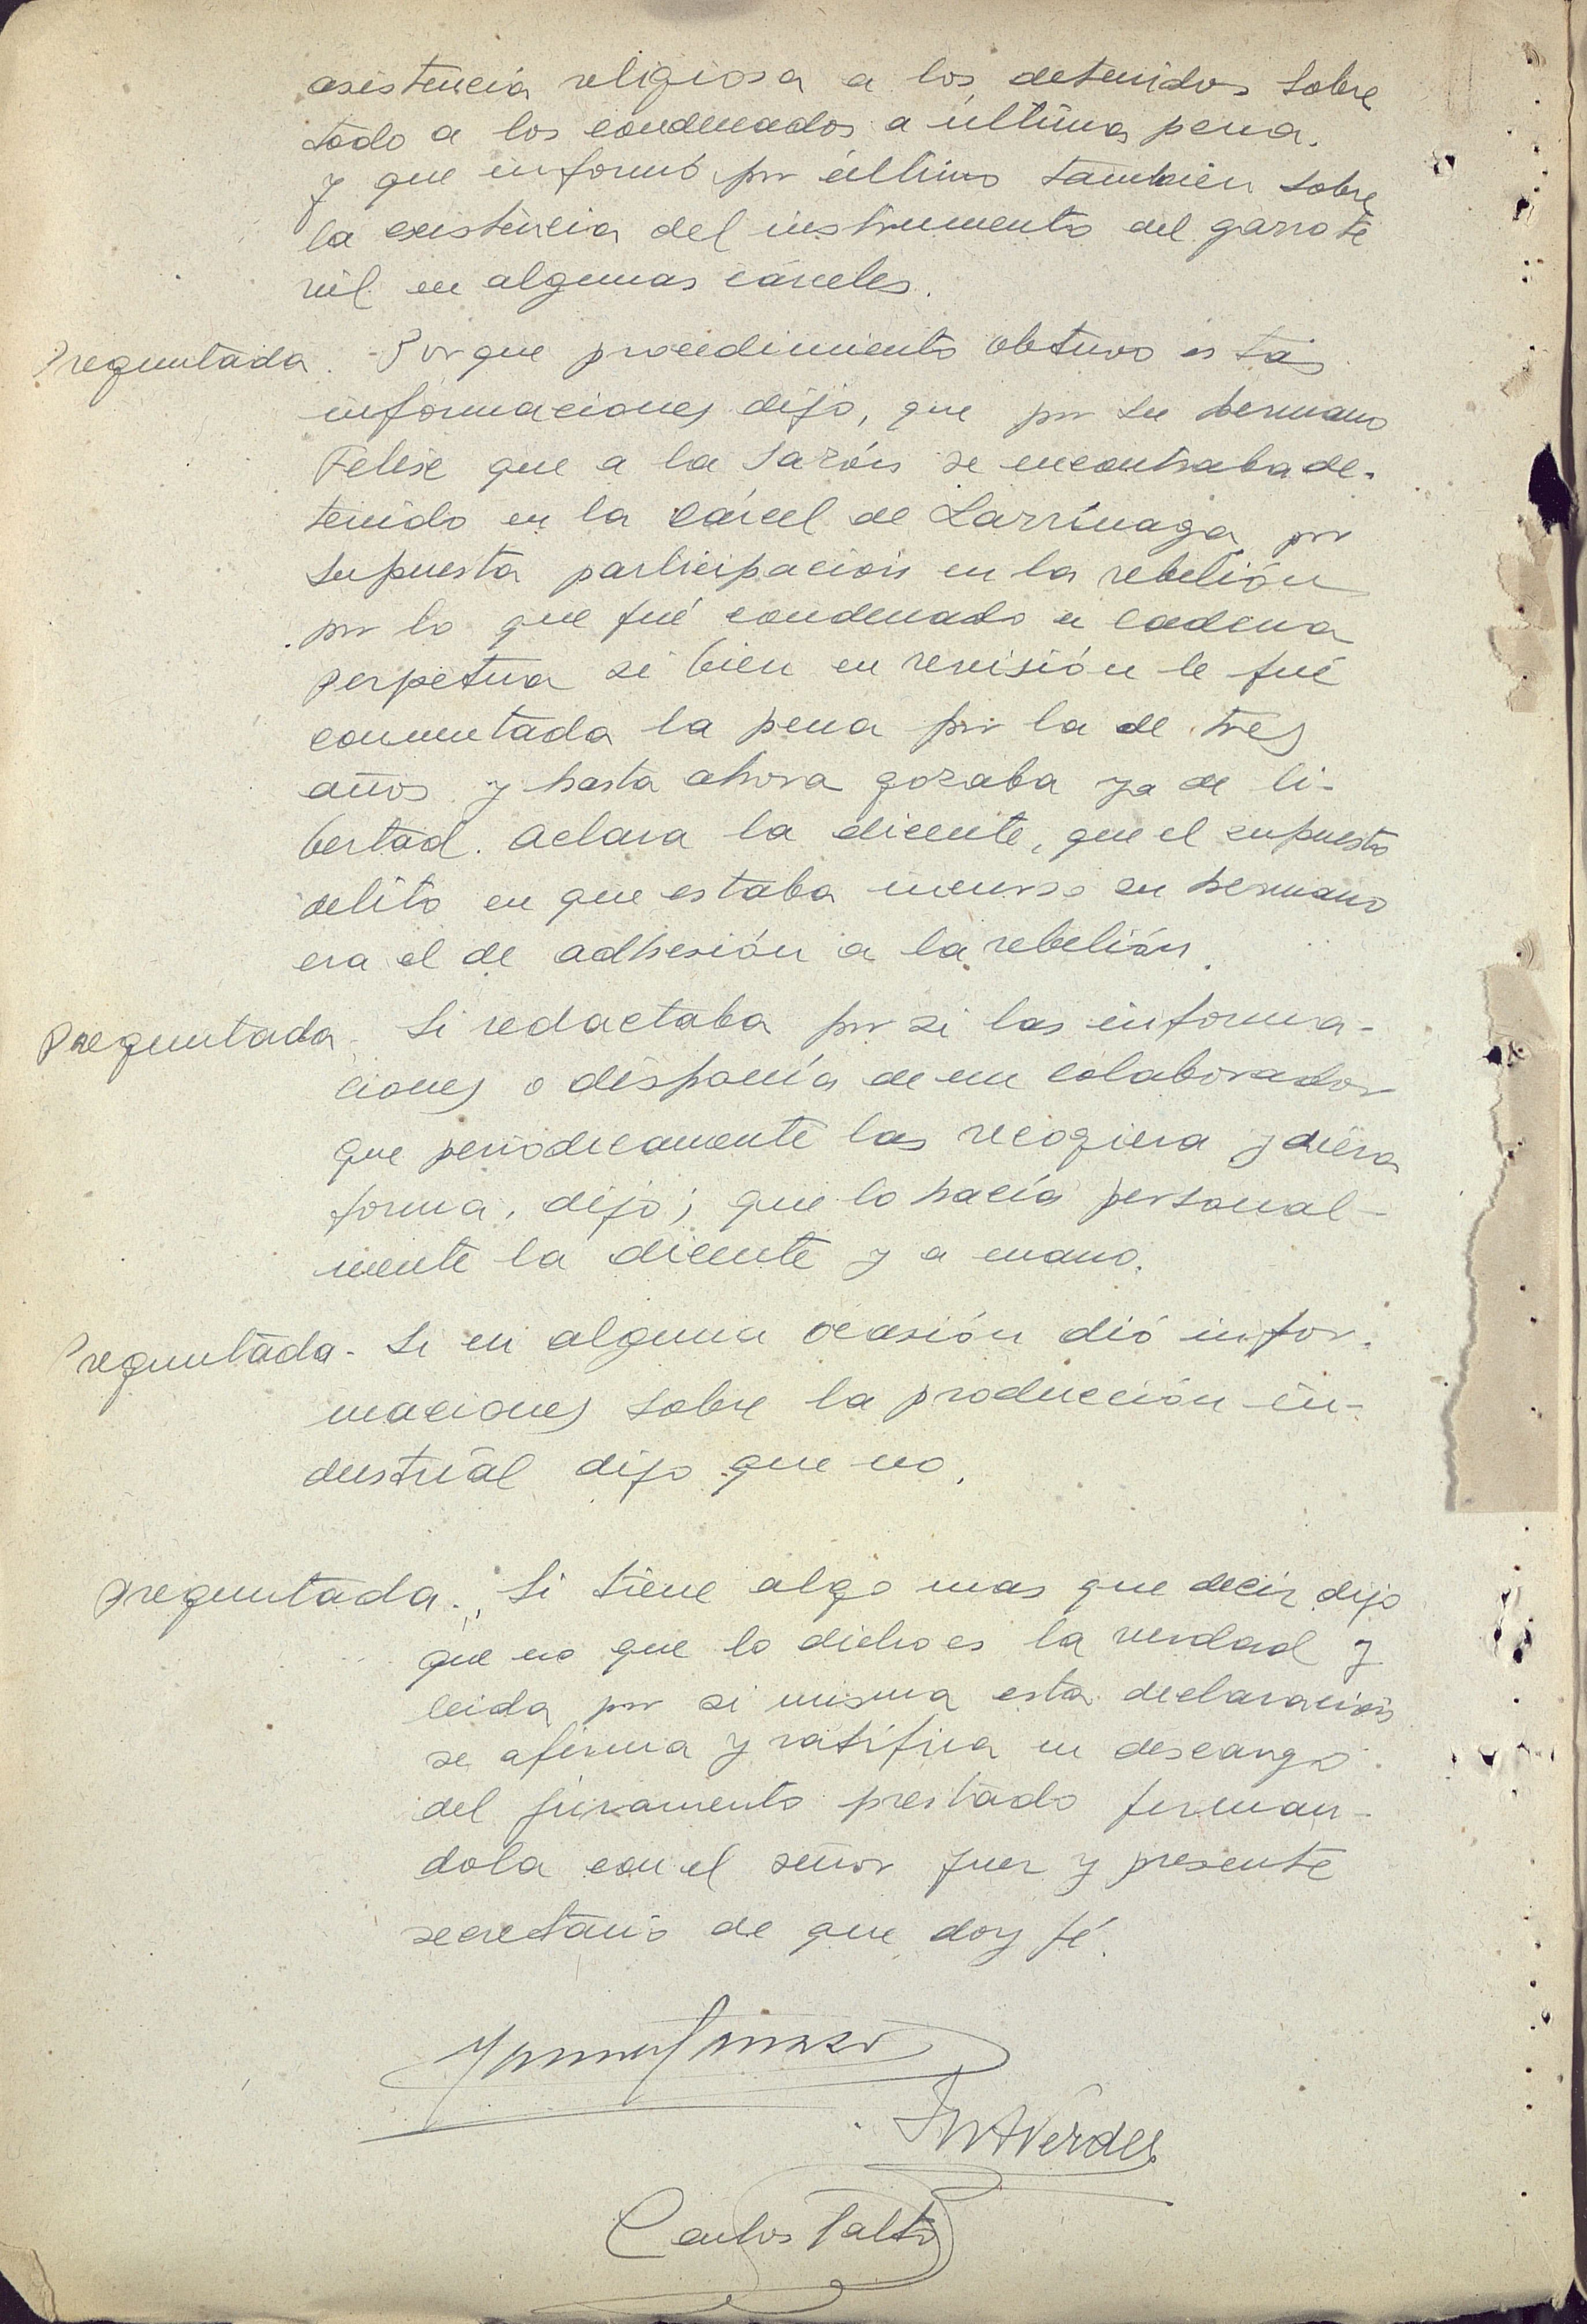 asistencia religiosa a los detenidos sobre
todo a los condenados a última pena.
y que informó por último tambien sobre
la existencia del instrumento del garrote
vil en algunas cárceles.
Preguntada. - Por que procedimiento obtuvo estas
informaciones dijo, que por su hermano
Felise que a la sazón se encontraba de-
tenido en la cárcel de Larrínaga por
supuesta participación en la rebelión
por lo que fué condenado a cadena
perpetua si bien en revisión le fué
conmutada la pena por la de tres
años y hasta ahora gozaba ya de li-
bertad. Aclara la dicente, que el supuesto
delito en que estaba incurso su hermano
era el de adhesión a la rebelión.
Preguntada - Si redactaba por si las informa-
ciones o disponía de un colaborador
que periodicamente las recogiera y diera
forma, dijo; que lo hacía personal-
mente la dicente y a mano.
Preguntada - Si en alguna ocasión dió infor-
maciones sobre la producción in-
dustrial dijo que no.
Preguntada.- Si tiene algo mas que decir dijo
que no que lo dicho es la verdad y
leida por si misma esta declaración
se afirma y ratifica en descargo
del juramento prestado firman-
dola con el señor juez y presente
secretario de que doy fé.
Verdes
Carlos